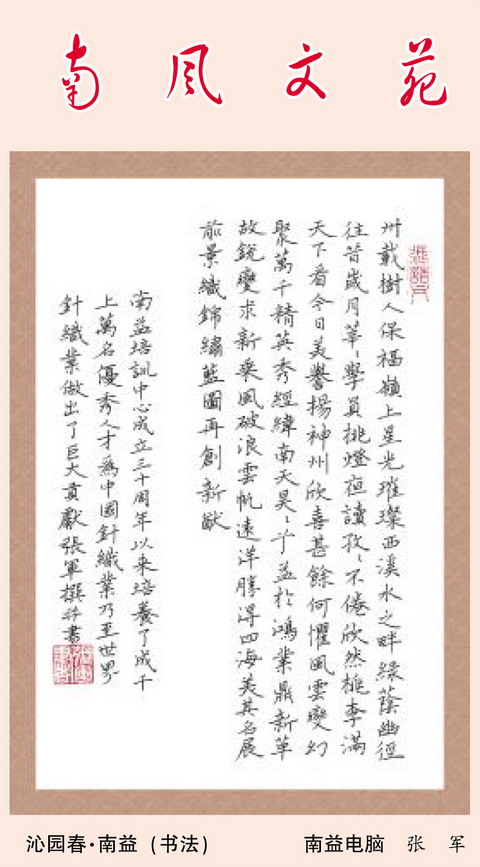 南风文苑
卅載樹人保福嶺上星光璀璨西溪水之畔綠蔭幽徑
往昔歲月莘莘學員挑燈夜讀孜孜不倦欣然桃李滿
天下看今日美譽揚神州欣喜甚餘何懼風雲變幻
聚萬千精英秀經緯南天昊昊予益於鴻業鼎新革
故銳變求新乘風破浪雲帆遠洋勝得四海美其名展
前景織錦繡藍圖再創新猷
南益培訓中心成立三十周年以來培養了成千
上萬名優秀人才為中國針織業乃至世界
針織業做出了巨大貢獻張軍撰并書
沁园春·南益（书法）
南益电脑 张 军